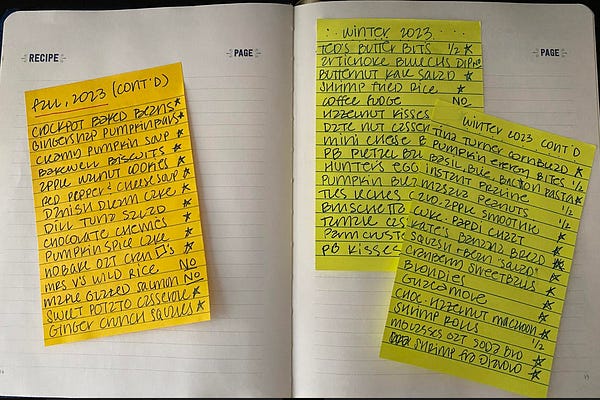 RECIPE
PAGE
FALL, 2023 (CONT'D)
CROCKPOT BAKED BEANS ★
GINGERSNAP PUMPKIN BARS ★
CREAMY PUMPKIN SOUP ★
BAKEWELL BISCUITS ★
APPLE WALNUT COOKIES ★
RED PEPPER & CHEESE SOUP ★
DANISH DREAM CAKE ★
DILL TUNA SALAD ★
CHOCOLATE CHEWIES ★
PUMPKIN SPICE CAKE ★
NO BAKE OAT CRAN □'S ★
MRS V'S WILD RICE NO
MAPLE GLAZED SALMON NO
SWEET POTATO CASSEROLE ★
GINGER CRUNCH SQUARES ★
PAGE
WINTER 2023
TED'S BUTTER BITS 1/2 ★
ARTICHOKE BLUE CHS DIP NO
BUTTERNUT KALE SALAD ★
SHRIMP FRIED RICE ★
COFFEE FUDGE NO
HAZELNUT KISSES
DATE NUT CASSER
MINI CHEESE B
PB PRETZEL
HUNTER'S EGG
PUMPKIN
BRUSCHETTA
PB KISSES
WINTER 2023 CONT'D
TINA TURNER CORNBREAD ★
PUMPKIN ENERGY BITES 1/2
BASIL, BLUE, BACON PASTA ★
INSTANT PRALINE 1/2
PEANUTS 1/2
APPLE SMOOTHIE ★
KATE'S BANANA BREAD ★
SQUASH + BEAN "SALAD" ★
CRANBERRY SWEETBALLS ★
BLONDIES ★
GUACAMOLE ★
CHOC-HAZELNUT MACAROON ★
SHRIMP ROLLS ★
MOLASSES OAT SODA BRD 1/2
SHRIMP FRA DIAVOLO ★